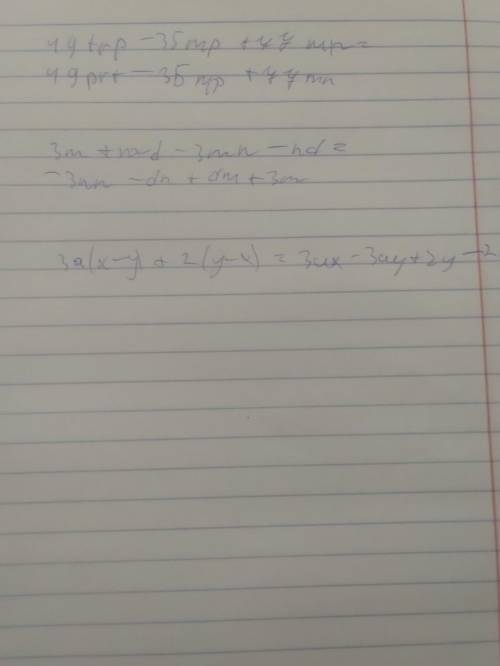 49tpp - 35mp + 77mn =
49prt - 35mp + 77mn
3m + md - 3mn - nd =
-3mn - dn + dm + 3m
3a(x-y) + 2(y-x) = 3ax - 3ay + 2y - 2